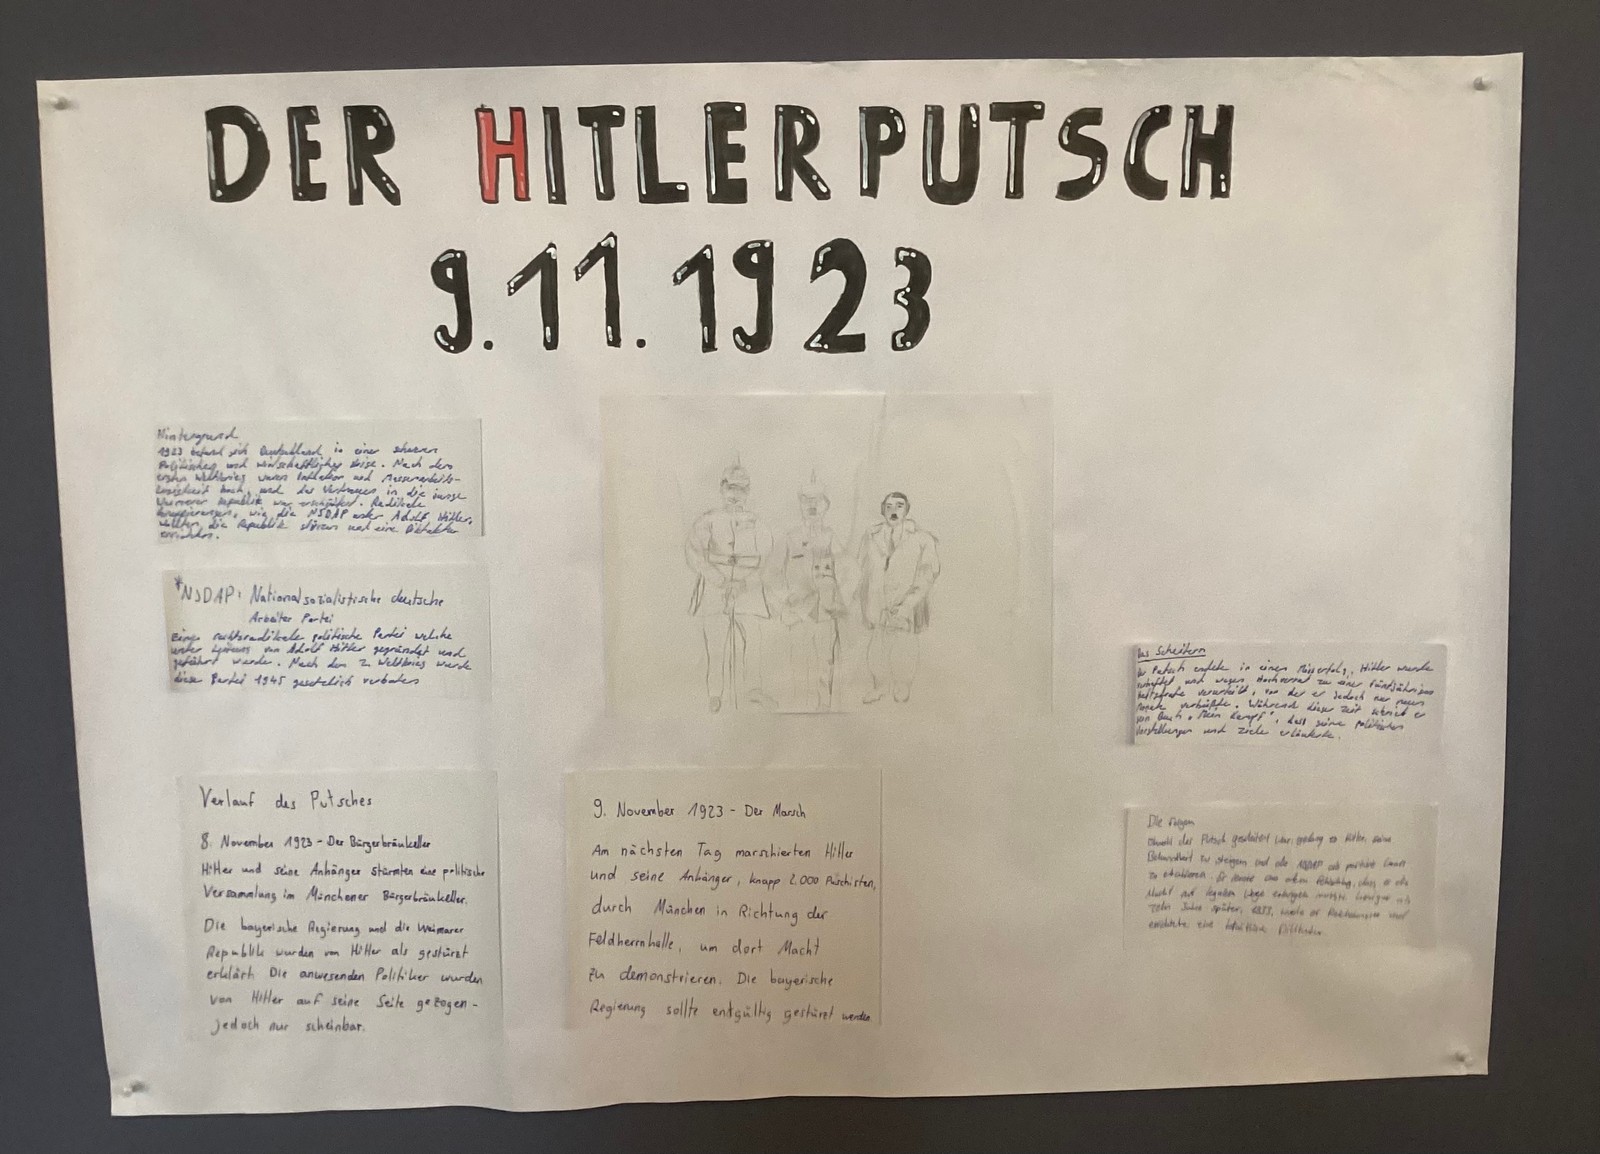 DER HITLERPUTSCH
9.11.1923
Hintergrund
1923 befand sich Deutschland in einer schweren
Politischen und wirtschaftlichen Krise. Nach dem
ersten Weltkrieg waren Inflation und Massenarbeits-
losigkeit hoch, und das Vertrauen in die junge
Weimarer Republik war erschüttert. Radikale
Gruppierungen, wie die NSDAP unter Adolf Hitler,
wollten die Republik stürzen und eine Diktatur
errichten.
*NSDAP: Nationalsozialistische deutsche
Arbeiter Partei
Eine rechtsradikale politische Partei welche
unter von Adolf Hitler gegründet und
geführt wurde. Nach dem 2. Weltkrieg wurde
diese Partei 1945 gesetzlich verboten
Verlauf des Putsches
8. November 1923 - Der Bürgerbräukeller
Hitler und seine Anhänger stürmten eine politische
Versammlung im Münchener Bürgerbräukeller.
Die bayerische Regierung und die Weimarer
Republik wurden von Hitler als gestürzt
erklärt. Die anwesenden Politiker wurden
von Hitler auf seine Seite gezogen -
jedoch nur scheinbar.
9. November 1923 - Der Marsch
Am nächsten Tag marschierten Hitler
und seine Anhänger, knapp 2.000 Putschisten,
durch München in Richtung der
Feldherrnhalle, um dort Macht
zu demonstrieren. Die bayerische
Regierung sollte entgültig gestürzt werden
Das Scheitern
Der Putsch endete in einem Misserfolg, Hitler wurde
verhaftet und wegen Hochverrat zu einer fünfjährigen
Haftstrafe verurteilt, von der er jedoch nur neun
Monate verbüßte. Während dieser Zeit schrieb er
sein Buch "Mein Kampf", dass seine politischen
Vorstellungen und Ziele erläuterte.
Die Folgen
Obwohl der Putsch gescheitert war, gelang es Hitler, seine
Bekanntheit zu steigern und die NSDAP als
zu etablieren. Er dass er die
Macht auf legalem Wege erlangen musste. Weniger als
zehn Jahre später, 1933, wurde er Reichskanzler und
errichtete eine